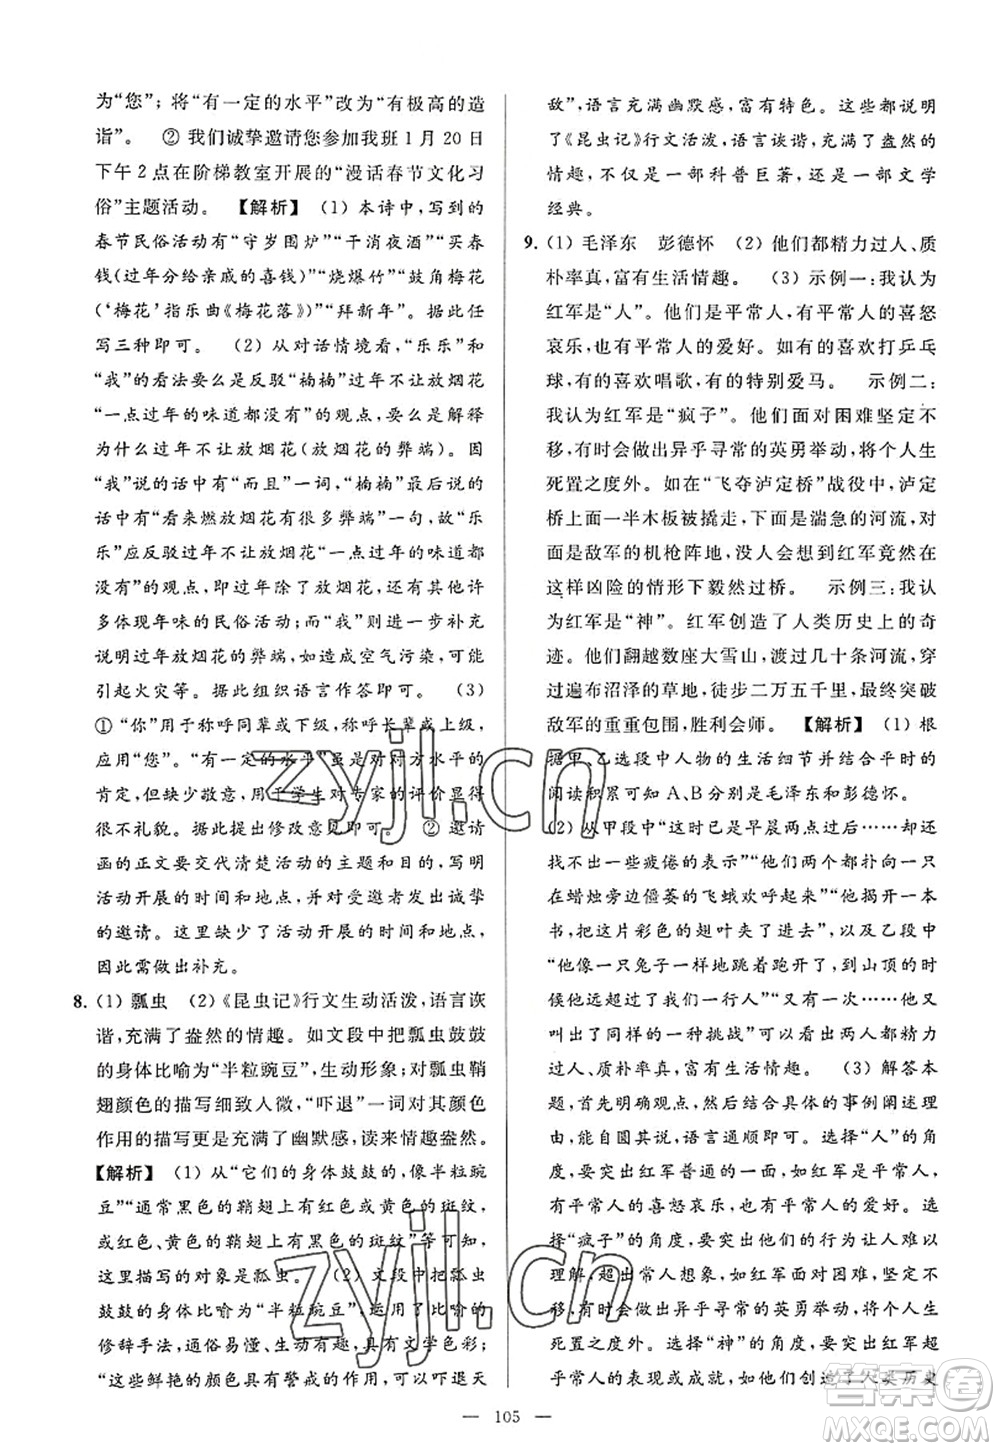 为“您”；将“有一定的水平”改为“有极高的造
诣”。　② 我们诚挚邀请您参加我班 1 月 20 日
下午 2 点在阶梯教室开展的“漫话春节文化习
俗”主题活动。　【解析】　(1) 本诗中，写到的
春节民俗活动有“守岁围炉”“干消夜酒”“买春
钱(过年分给亲戚的喜钱)”“烧爆竹”“鼓角梅花
(‘梅花’指乐曲《梅花落》)”“拜新年”。据此任
写三种即可。　(2) 从对话情境看，“乐乐”和
“我”的看法要么是反驳“楠楠”过年不让放烟花
“一点过年的味道都没有”的观点，要么是解释
为什么过年不让放烟花(放烟花的弊端)。因
“我”说的话中有“而且”一词，“楠楠”说的话中
有“看来燃放烟花有很多弊端”一句，故“乐
乐”应反驳过年不让放烟花“一点过年的味道都
没有”的观点，即过年除了放烟花，还有其他许
多体现年味的民俗活动；而“我”则进一步补充
说明过年放烟花的弊端，如造成空气污染，可能
引起火灾等。据此组织语言作答即可。　(3)
①“你”用于称呼同辈或下级，称呼长辈或上级，
应用“您”。“有一定的水平”虽是对对方水平的
肯定，但缺少敬意，用于学生对专家的评价显得
很不礼貌。据此提出修改意见即可。　② 邀请
函的正文要交代清楚活动的主题和目的，写明
活动开展的时间和地点，并表达对受邀者诚挚
的邀请。这里缺少了活动开展的时间和地点，
因此需做出补充。
8. (1) 瓢虫　(2)《昆虫记》行文生动活泼，语言诙
谐，充满了盎然的情趣。如文段中把瓢虫鼓鼓
的身体比喻为“半粒豌豆”，生动形象；对瓢虫鞘
翅颜色的描写细致入微，“吓退”一词对其颜色
作用的描写更是充满了幽默感，读来情趣盎然。
【解析】　(1) 从“它们的身体鼓鼓的，像半粒豌
豆”“通常黑色的鞘翅上有红色或黄色的斑纹，
红色、黄色的鞘翅上有黑色的斑纹”等可知，
这里描写的对象是瓢虫。　(2) 文段中把瓢虫
鼓鼓的身体比喻为“半粒豌豆”，运用了比喻的
修辞手法，通俗易懂、生动有趣，具有文学色彩；
“这些鲜艳的颜色具有警戒的作用，可以吓退天
敌”，语言充满幽默感，富有特色。这些都说明
了《昆虫记》行文活泼，语言诙谐，充满了盎然的
情趣，不仅是一部科普巨著，还是一部文学
经典。
9. (1) 毛泽东　彭德怀　(2) 他们都精力过人、质
朴率真，富有生活情趣。　(3) 示例一：我认为
红军是“人”。他们是平常人，有平常人的喜怒
哀乐，也有平常人的爱好。如有的喜欢打乒乓
球，有的喜欢唱歌，有的特别爱马。　示例二：
我认为红军是“疯子”。他们面对困难坚定不
移，有时会做出异乎寻常的英勇举动，将个人生
死置之度外。如在“飞夺泸定桥”战役中，泸定
桥上面一半木板被撬走，下面是湍急的河流，对
面是敌军的机枪阵地，没人会想到红军竟然在
这样凶险的情形下毅然过桥。　示例三：我认
为红军是“神”。红军创造了人类历史上的奇
迹。他们翻越数座大雪山，渡过几十条河流，穿
过遍布沼泽的草地，徒步二万五千里，最终突破
敌军的重重包围，胜利会师。　【解析】　(1) 根
据甲、乙选段中人物的生活细节并结合平时的
阅读积累可知 A、B 分别是毛泽东和彭德怀。
(2) 从甲段中“这时已是早晨两点过后……却还
找不出一些疲倦的表示”“他们两个都扑向一只
在蜡烛旁边僵萎的飞蛾欢呼起来”“他在一本
书中，把这片彩色的翅叶夹了进去”，以及乙段中
“他像一只兔子一样地跳着跑着，在山顶而且
超过了我们一行人”“又有一次……他又
叫出了同样的一种挑战”可以看出两人都精力
过人、质朴率真，富有生活情趣。　(3) 解答本
题，首先明确观点，然后结合具体的事例阐述理
由，能自圆其说，语言通顺即可。选择“人”的角
度，要突出红军普通的一面，如红军是平常人，
有平常人的喜怒哀乐，有平常人的爱好。选
择“疯子”的角度，要突出他们的行为让人难以
理解，超出常人想象，如红军面对困难，坚定不
移，有时会做出异乎寻常的英勇举动，将个人生
死置之度外。选择“神”的角度，要突出红军超乎
常人的表现或成就，如红军创造了人类历史
— 105 —
zyjl.cn
zyjl.cn
答案圈
MXQE.COM